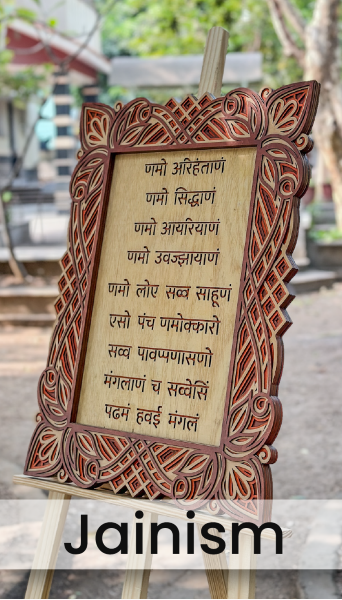 णमो अरिहंताणं
णमो सिद्धाणं
णमो आयरियाणं
णमो उवज्झायाणं
णमो लोए सव्व साहूणं
एसो पंच णमोक्कारो
सव्व पावप्पणासणो
मंगलाणं च सव्वेसिं
पढमं हवई मंगलं
Jainism